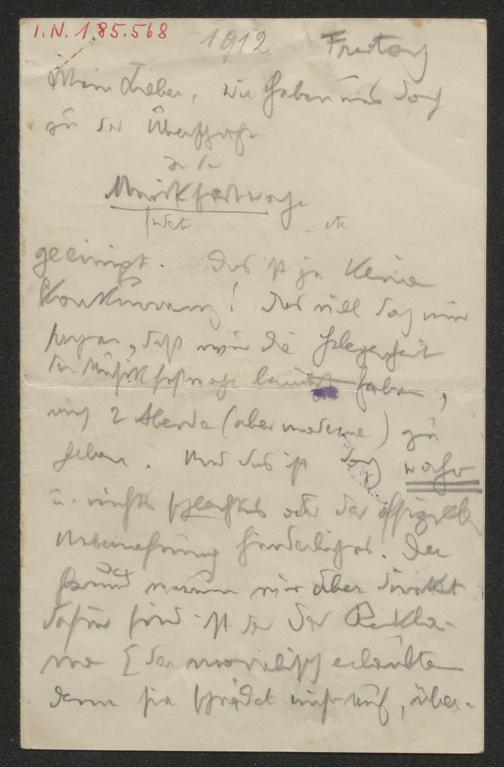 I.N. 185.568
1912 Freitag
Mein Lieber, wir haben uns doch
zu der Überschrift
In der
Musikfestwoche
findet etc
geeinigt. Das ist ja keine
Konkurrenz! Das will doch nur
sagen, daß wir die Gelegenheit
der Musikfestwoche benützt haben,
um 2 Abende (aber moderne) zu
geben. Und das ist doch wahr
u. nichts schlechtes oder der offiziellen
Unternehmung hinderliches. Der
Grund warum wir aber direkt
dafür sind ist der der Rekla-
me (der moralisch erlaubten
denn sie schadet niemand, über-